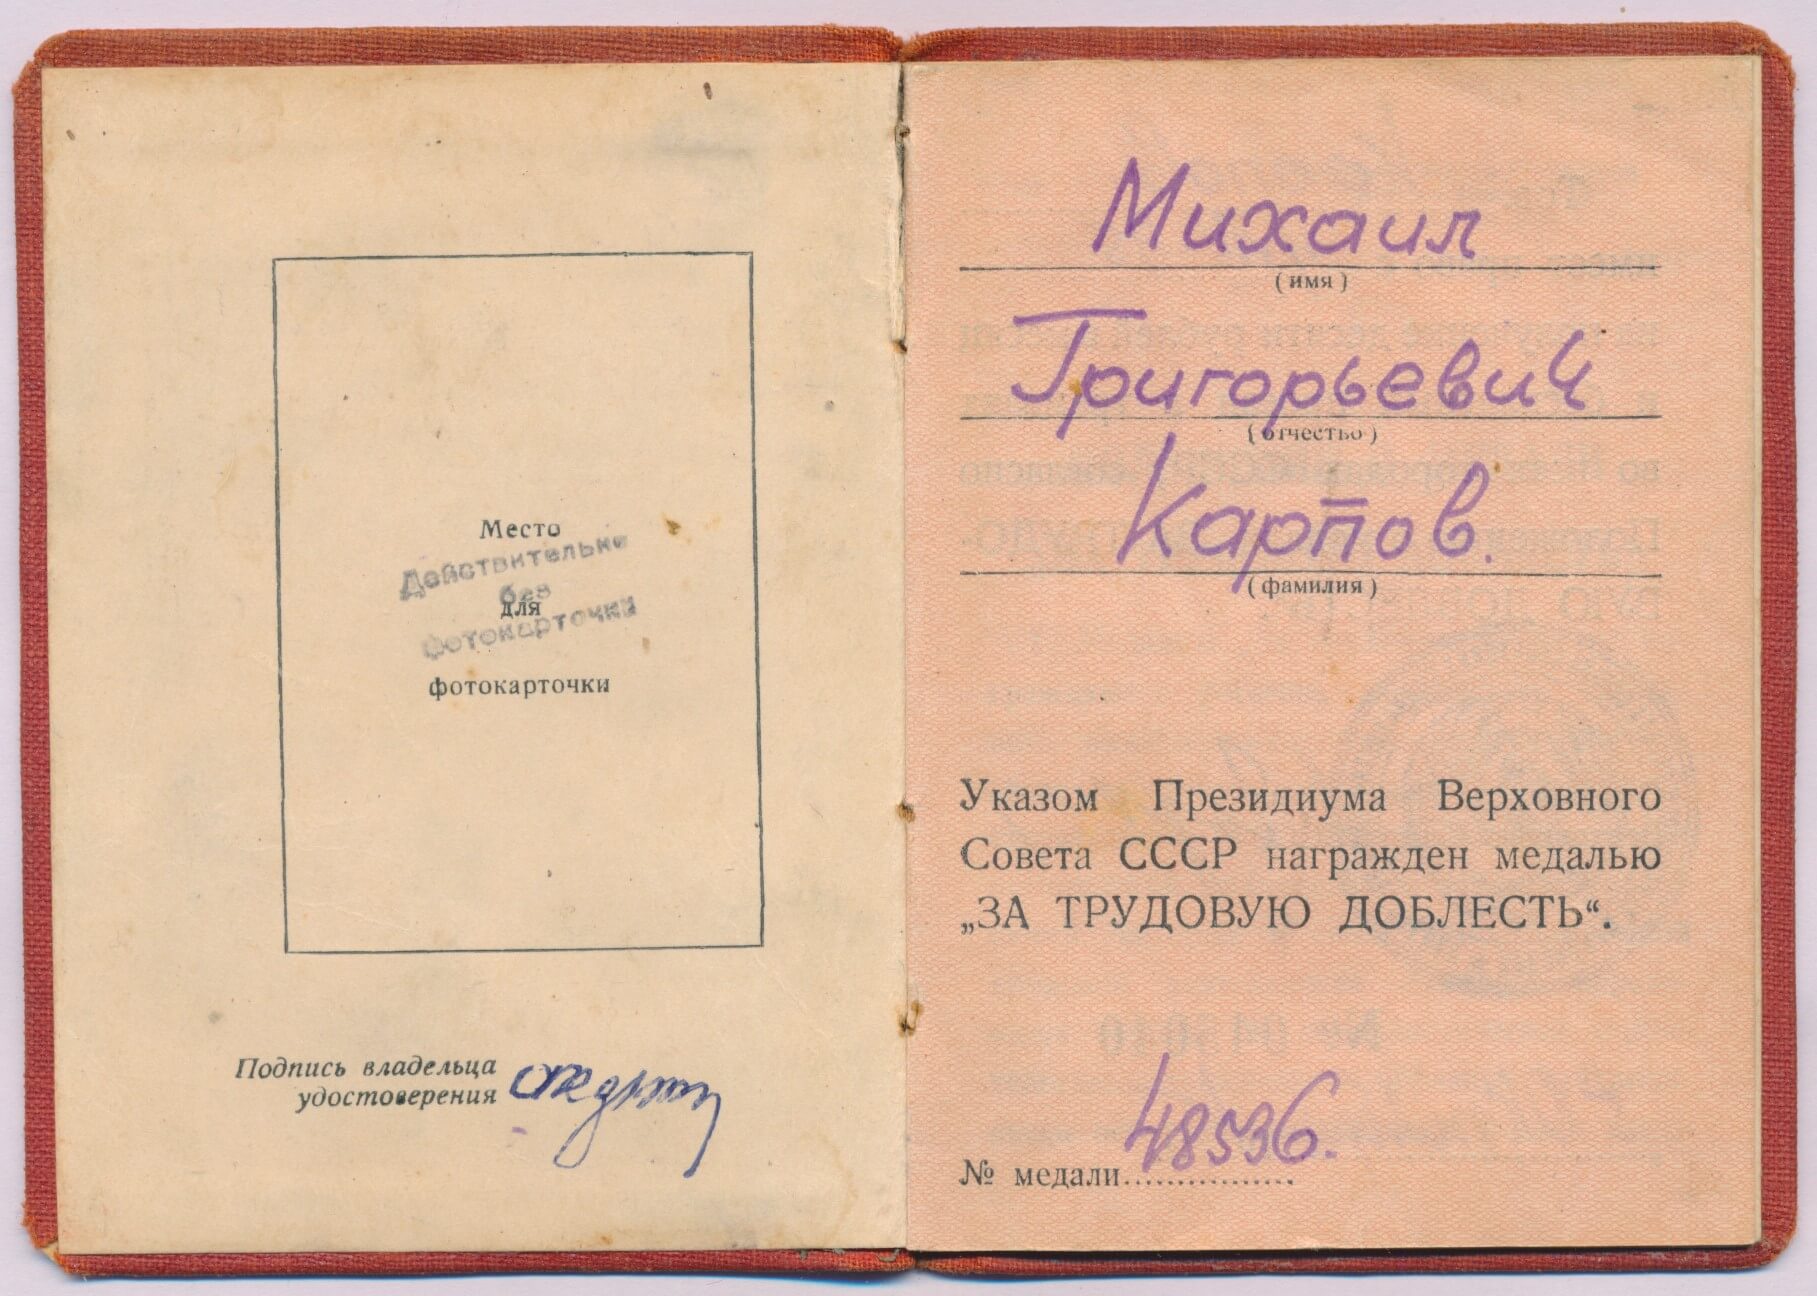 Место
для
фотокарточки
Действительно
без
фотокарточки
Подпись владельца
удостоверения
Михаил
( имя )
Григорьевич
( отчество )
Карпов.
( фамилия )
Указом Президиума Верховного
Совета СССР награжден медалью
„ЗА ТРУДОВУЮ ДОБЛЕСТЬ“.
№ медали 48536.